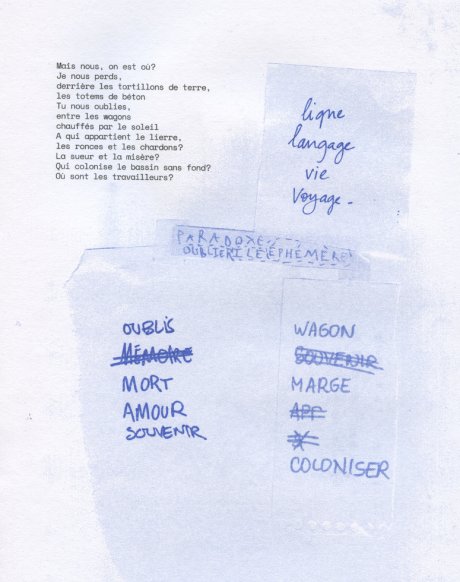 Mais nous, on est où?
Je nous perds,
derrière les tortillons de terre,
les totems de béton
Tu nous oublies,
entre les wagons
chauffés par le soleil
A qui appartient le lierre,
les ronces et les chardons?
La sueur et la misère?
Qui colonise le bassin sans fond?
Où sont les travailleurs?
ligne
langage
vie
Voyage.
PARADOXE
OUBLIER L'ÉPHÉMÈRE
OUBLIS
MÉMOIRE
MORT
AMOUR
SOUVENIR
WAGON
SOUVENIR
MARGE
APP
COLONISER